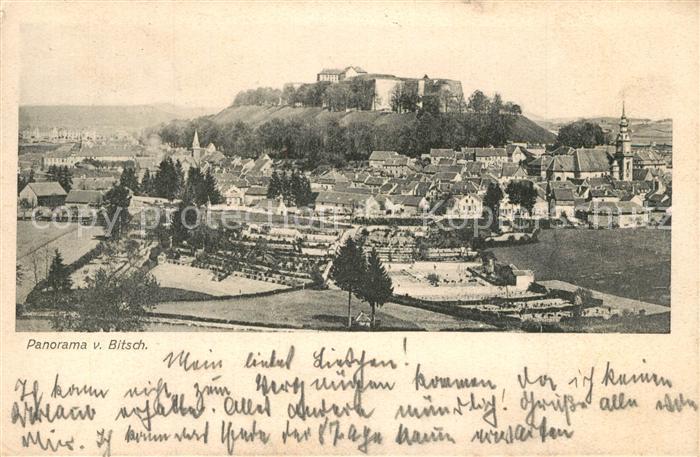 Panorama v. Bitsch.
Mein liebes Lieschen!
Ich kann nicht zum vergnügen kommen, da ich keinen
Urlaub erhalte. Alles andere mündlich! Grüße alle von
mir. Ich kann das Ende der 8 Tage kaum erwarten